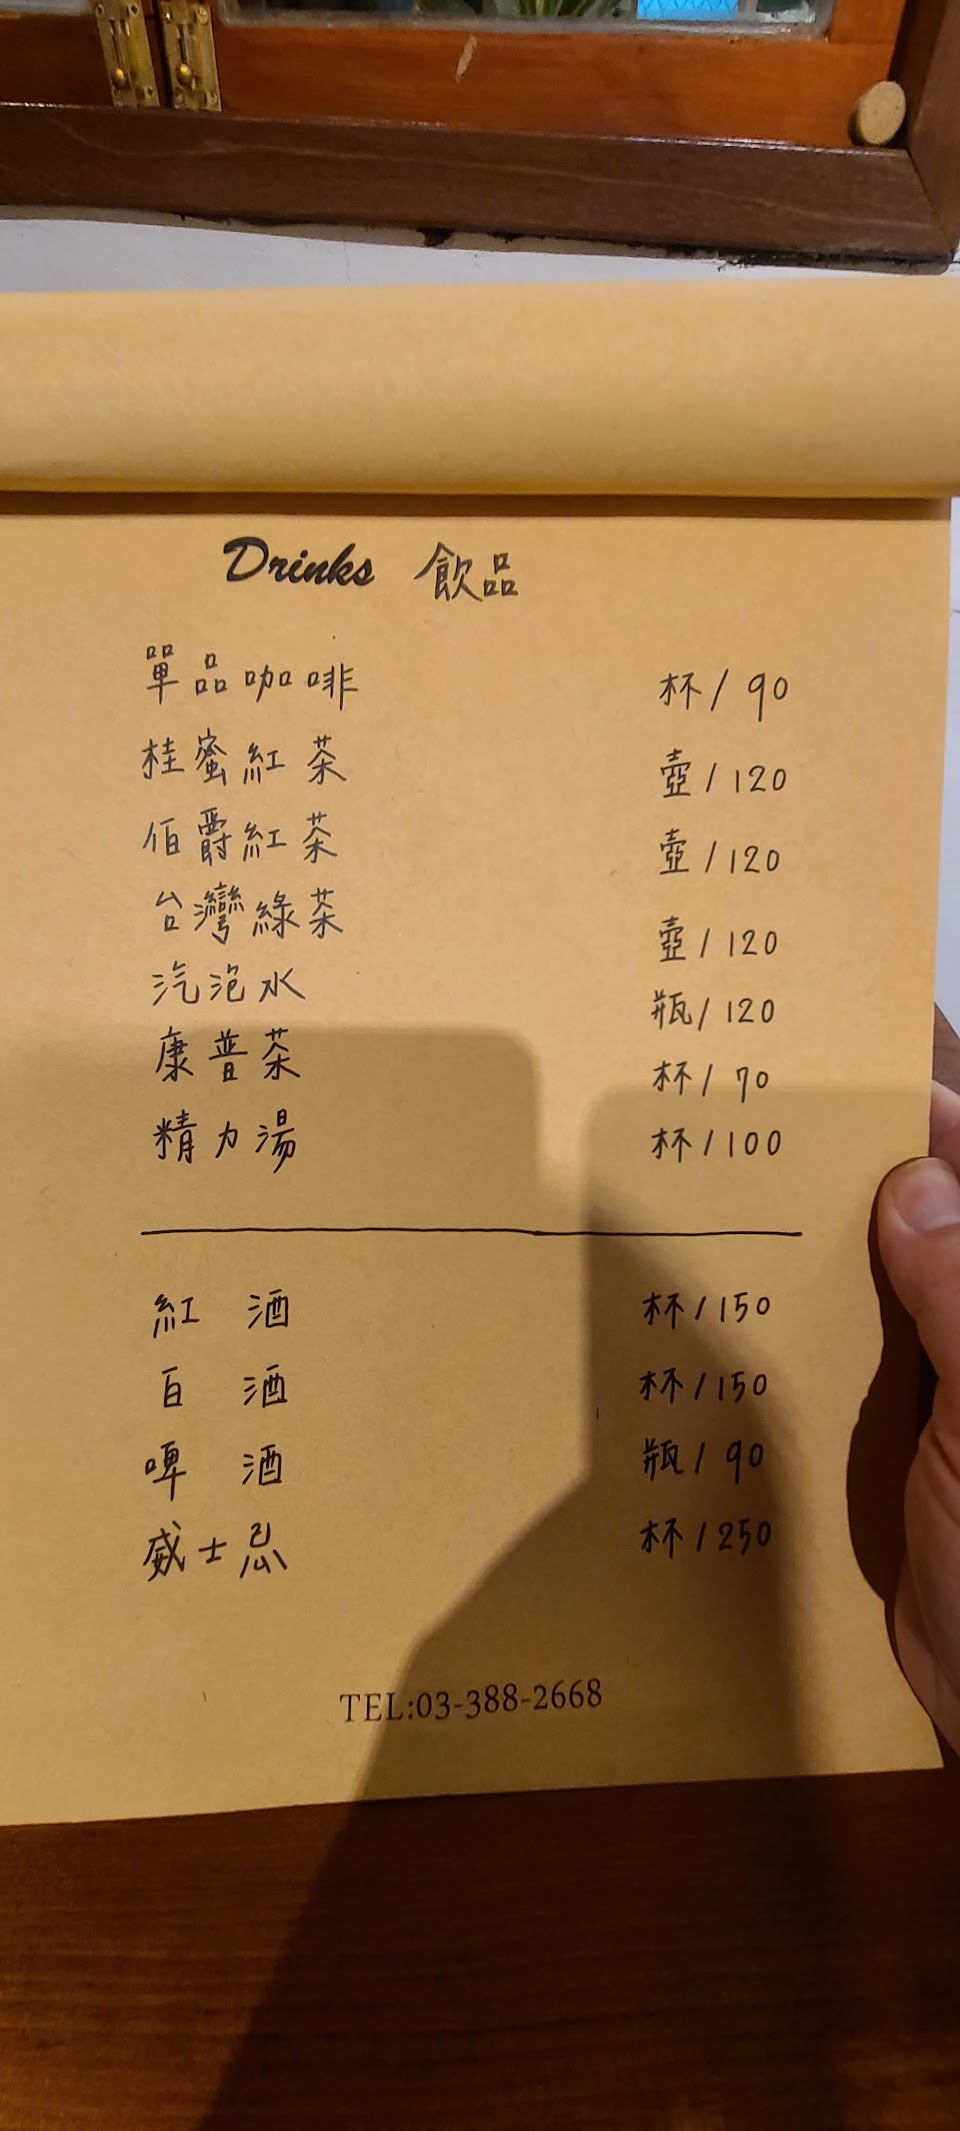 Drinks 飲品
單品咖啡 杯/90
桂蜜紅茶 壺/120
伯爵紅茶 壺/120
台灣綠茶 壺/120
汽泡水 瓶/120
康普茶 杯/70
精力湯 杯/100
紅酒 杯/150
白酒 杯/150
啤酒 瓶/90
威士忌 杯/250
TEL:03-388-2668